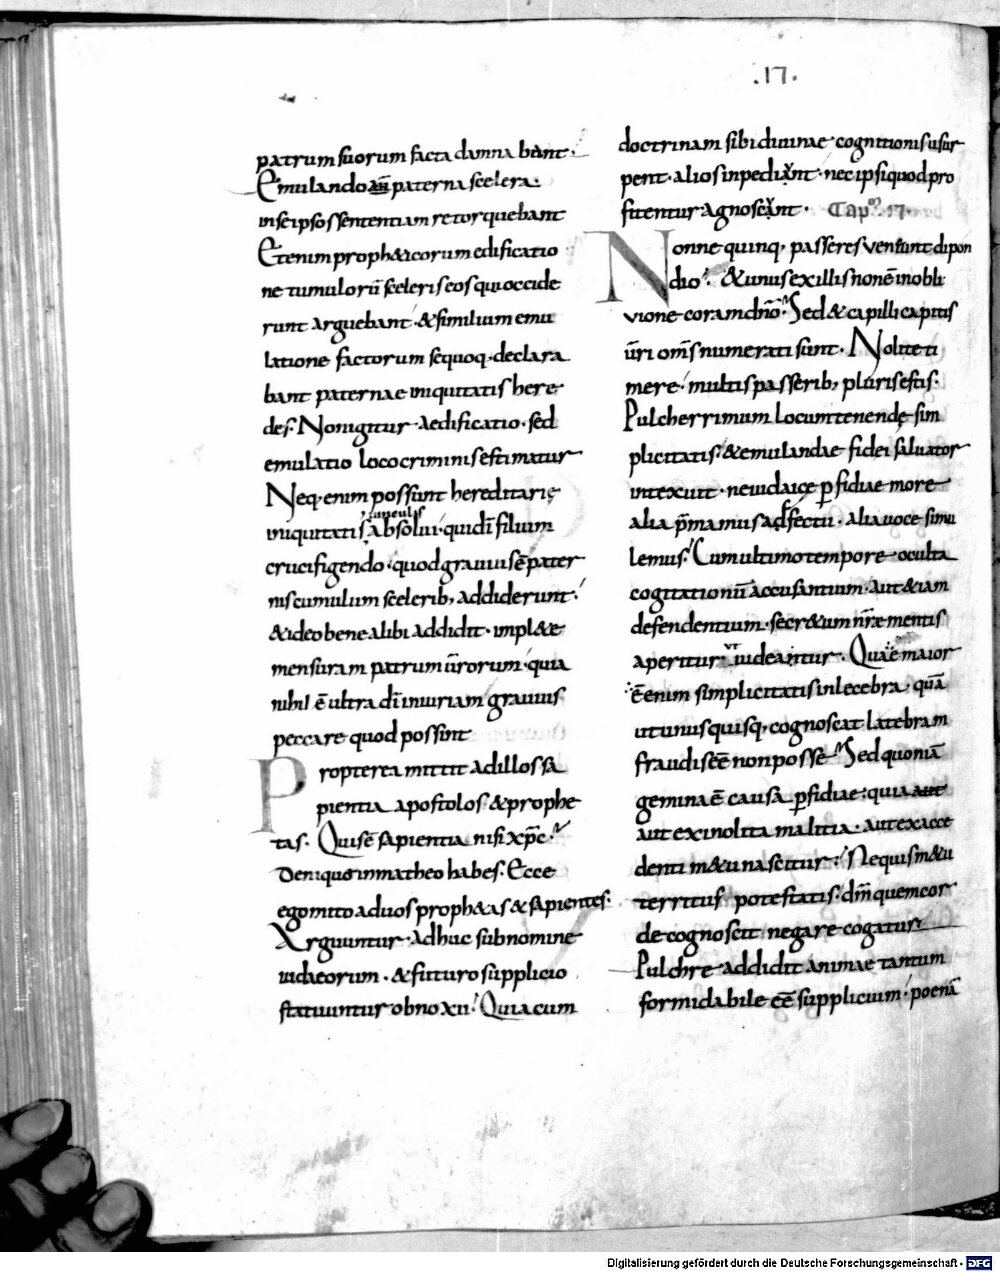 .17.
patrum suorum facta damnabant.
Emulando au paterna scelera.
inse ipsos sententiam retorquebant
Etenim prophetarum edificatio
ne tumulorū sceleris eos qui occide
runt arguebant. & similium emu
latione factorum seq; declara
bant paternae iniquitatis here
des. Non igitur aedificatio. sed
emulatio loco criminis estimatur
Neq; enim possunt hereditariȩ
cunculis
iniquitatis absolui. qui di filium
crucifigendo. quod grauius ē pater
nis cumulum scelerib; addiderunt.
& ideo bene alibi addidit. implete
mensuram patrum ūrorum. quia
nihil ē ultra di iniuriam grauius
peccare quod possint
Propterea mittit ad illos sa
pientia apostolos. & prophe
tas. Quis ē sapientia nisi xp̄c.
Denique in matheo habes. Ecce
ego mitto ad uos prophetas & sapientes.
Arguuntur. Adhuc sub nomine
iudaeorum. & futuro supplicio
statuuntur obnoxii. Quia cum
doctrinam sibi diuinae cognitionis usur
pent. alios inpediant. nec ipsi quod pro
fitentur agnoscant. Cap. 17.
Nonne quinq; passeres veneunt dipon
dio. & unus ex illis non ē in obli
vione coram dnō. Sed & capilli capitis
ūri oms numerati sunt. Nolite ti
mere. multis passerib; pluris estis.
Pulcherrimum locum tenendȩ sim
plicitatis. & emulandae fidei saluator
intexuit. ne iudaicȩ perfidiae more
alia p̄mamus adfectu. alia uoce simu
lemus. Cum ultimo tempore occulta
cogitationū accusantium. aut etiam
defendentium. secretum nr̄ae mentis
ut
aperitur. uideantur. Quae maior
ē enim simplicitatis inlecebra. quā
ut unusquisq; cognoscat latebram
fraudis eē non posse. Sed quoniā
gemina ē causa perfidiae. quia aut
aut ex inolita malitia. aut ex acce
denti metu nascitur. Ne quis metu
territus potestatis. dm̄ quem cor
de cognoscit negare cogatur.
Pulchre addidit animae tantum
formidabile eē supplicium. poenā
Digitalisierung gefördert durch die Deutsche Forschungsgemeinschaft - DFG